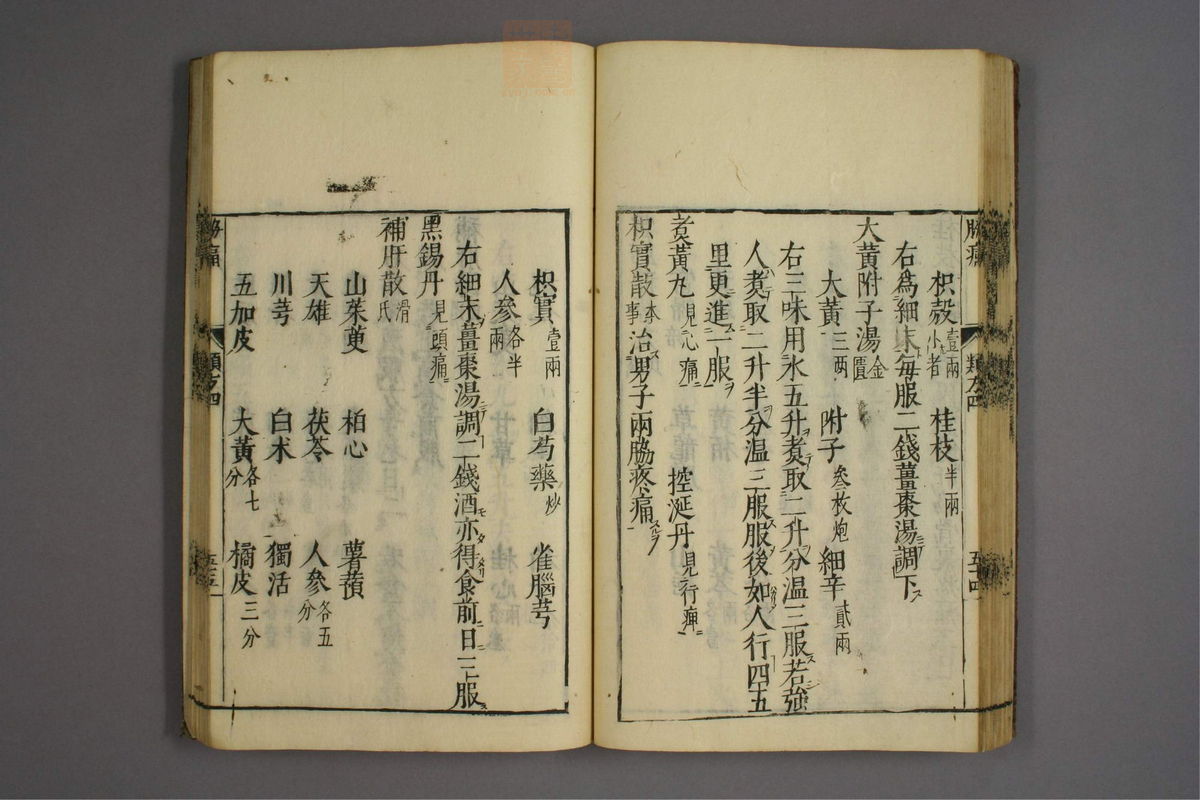 脇痛 類方四 五十四
枳殼壹兩小者 桂枝半兩
右爲細末每服二錢薑棗湯調下
大黃附子湯金匱
大黃三兩 附子叄枚炮 細辛貳兩
右三味用水五升煮取二升分温三服若強
人煮取二升半分温三服服後如人行四五
里更進一服
煮黃丸見心痛 控涎丹見行痺
枳實散本事治男子兩脇疼痛
枳實壹兩 白芍藥炒 雀腦芎
人參各半兩
右細末薑棗湯調二錢酒亦得食前日三服
黑錫丹見頭痛
補肝散滑氏
山茱萸 柏心 薯蕷
天雄 茯苓 人參各五分
川芎 白术 獨活
五加皮 大黃各七分 橘皮三分
脇痛 類方四